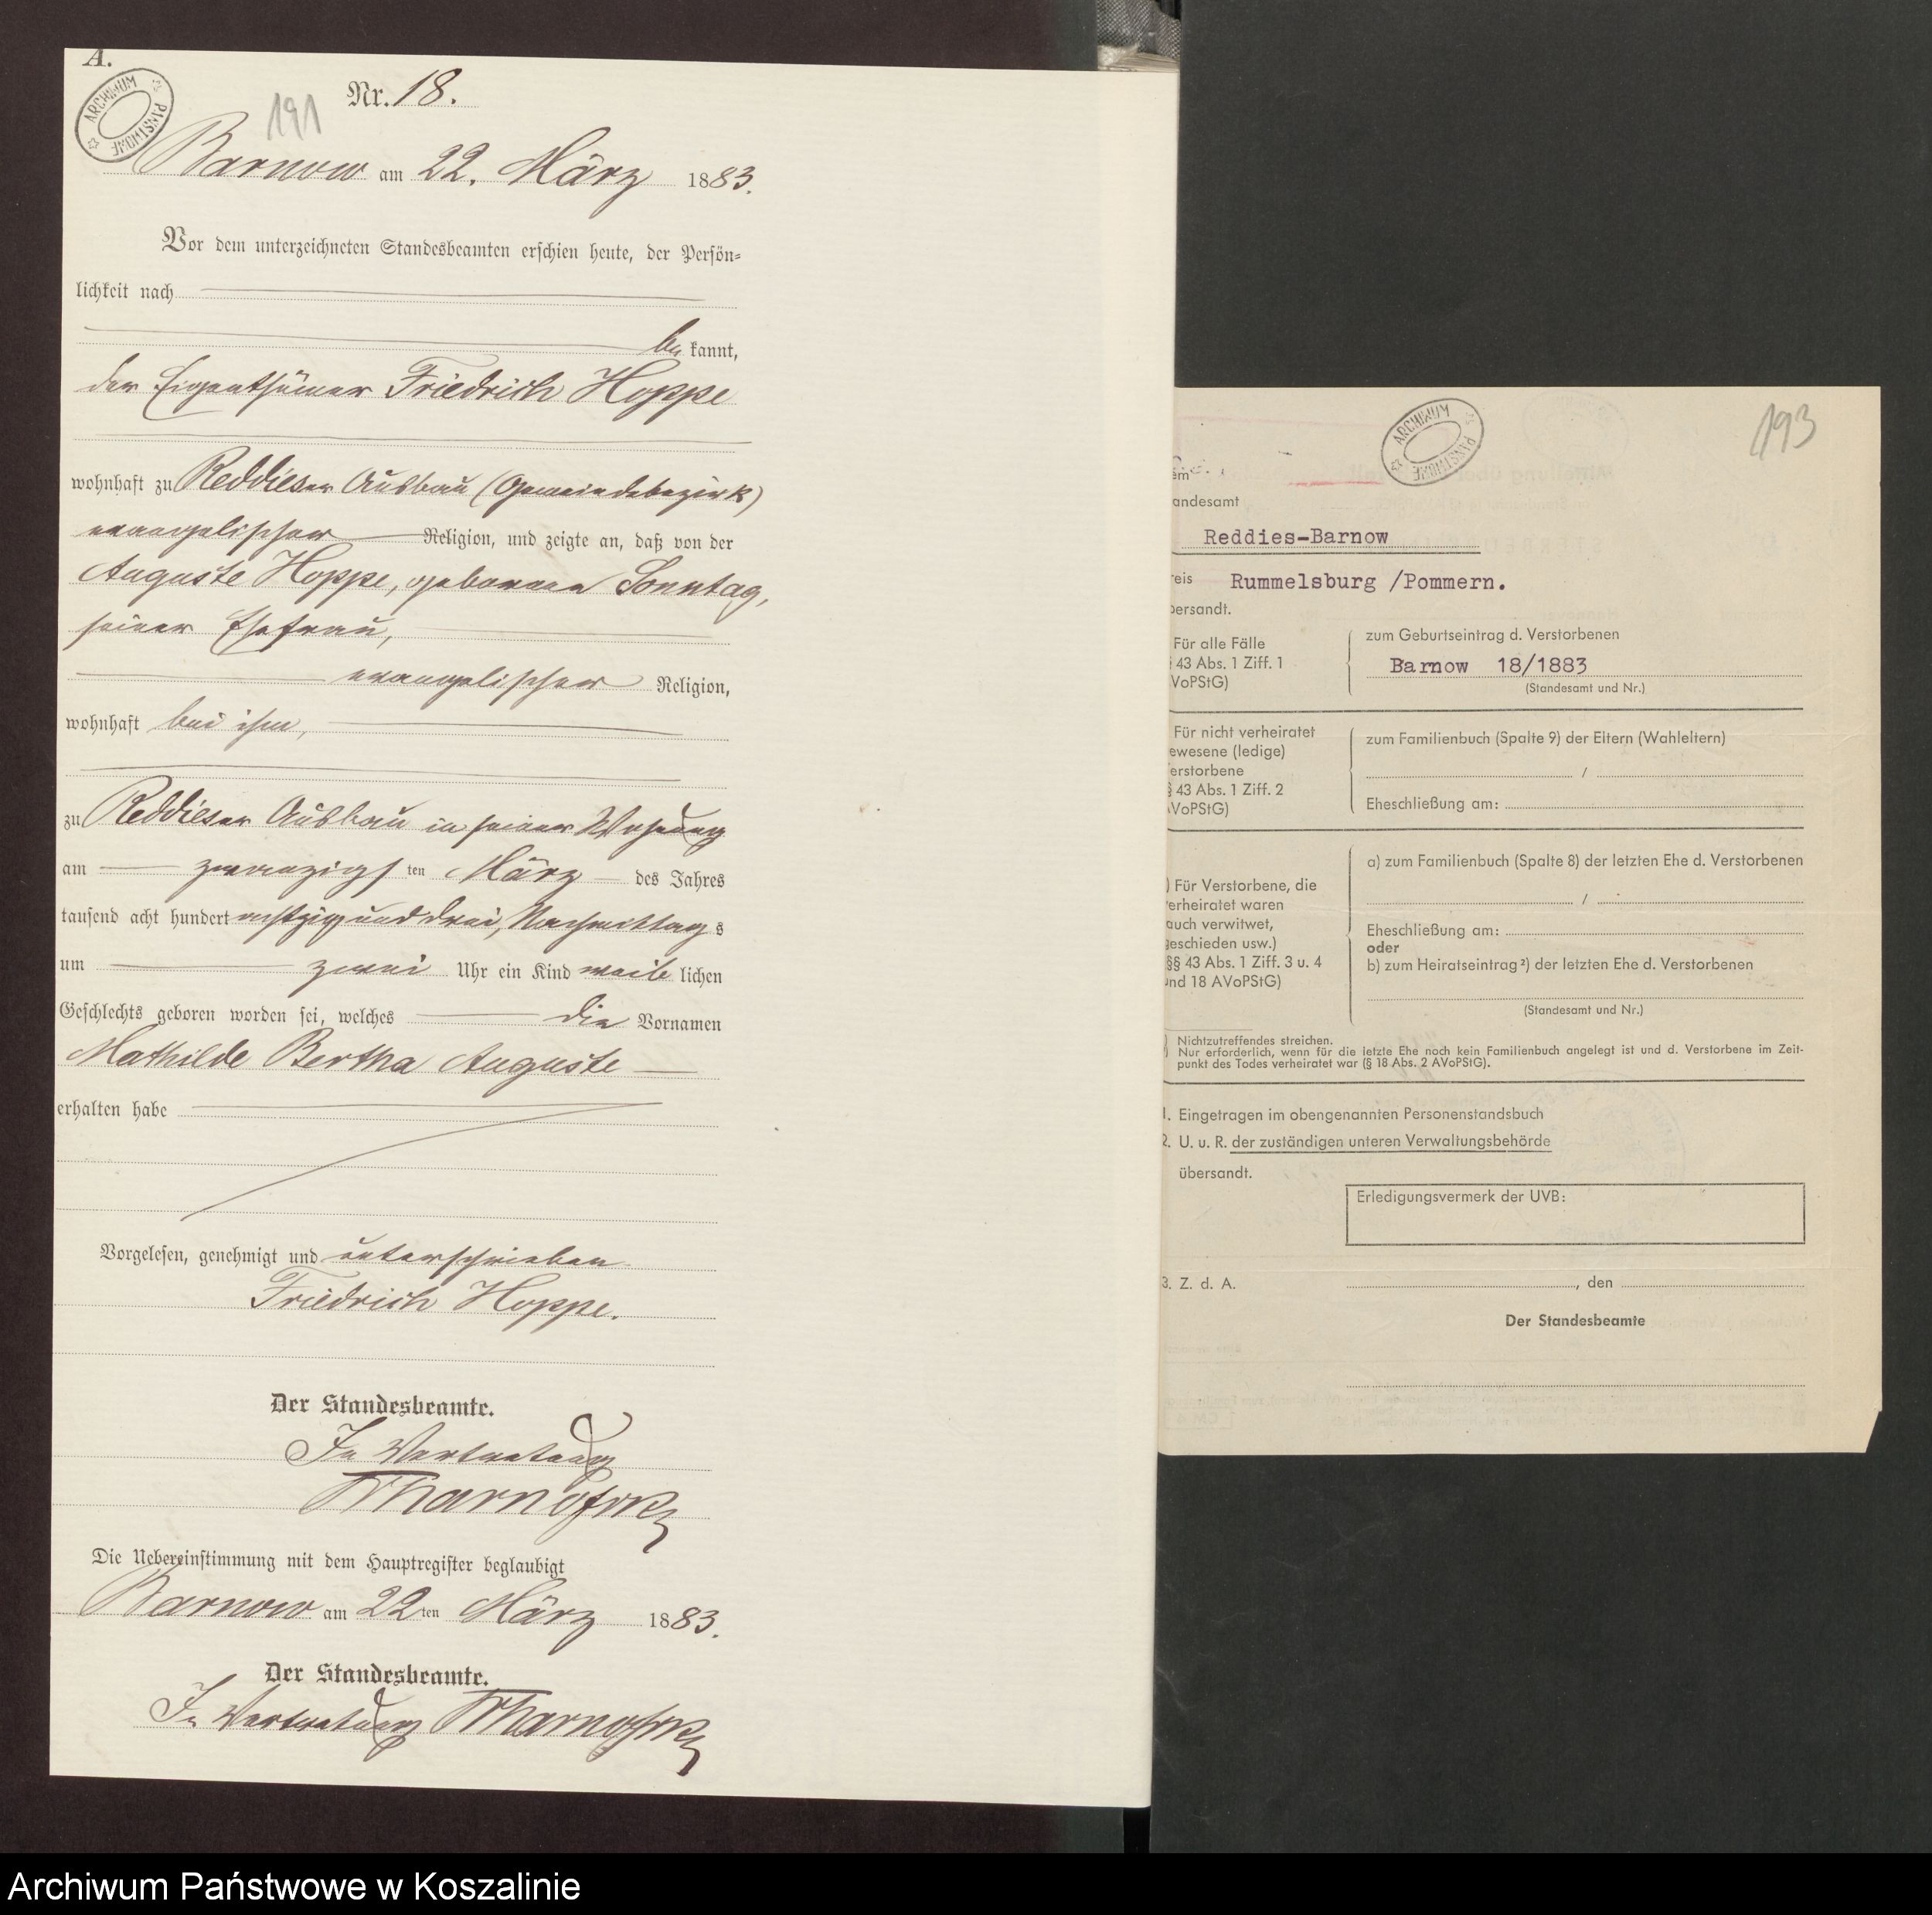 A.
ARCHIWUM PAŃSTWOWE
191
Nr. 18.
Barnow am 22. März 1883.
Vor dem unterzeichneten Standesbeamten erschien heute, der Persön-
lichkeit nach
be kannt,
der Eigenthümer Friedrich Hoppe
wohnhaft zu Reddieser Ausbau (Gemeindebezirk)
evangelischer Religion, und zeigte an, daß von der
Auguste Hoppe, geborenen Sonntag,
seiner Ehefrau,
evangelischer Religion,
wohnhaft bei ihm,
zu Reddieser Ausbau in seiner Wohnung
am zwanzigsten März des Jahres
tausend acht hundert achtzig und drei, Nachmittags
um zwei Uhr ein Kind weiblichen
Geschlechts geboren worden sei, welches die Vornamen
Mathilde Bertha Auguste
erhalten habe
Vorgelesen, genehmigt und unterschrieben
Friedrich Hoppe.
Der Standesbeamte.
In Vertretung
Die Uebereinstimmung mit dem Hauptregister beglaubigt
Barnow am 22ten März 1883.
Der Standesbeamte.
In Vertretung
193
ARCHIWUM PAŃSTWOWE
em
andesamt
Reddies-Barnow
eis Rummelsburg /Pommern.
bersandt.
Für alle Fälle
§ 43 Abs. 1 Ziff. 1
VoPStG)
zum Geburtseintrag d. Verstorbenen
Barnow 18/1883
(Standesamt und Nr.)
Für nicht verheiratet
ewesene (ledige)
erstorbene
§ 43 Abs. 1 Ziff. 2
VoPStG)
zum Familienbuch (Spalte 9) der Eltern (Wahleltern)
/
Eheschließung am:
) Für Verstorbene, die
erheiratet waren
auch verwitwet,
geschieden usw.)
§§ 43 Abs. 1 Ziff. 3 u. 4
und 18 AVoPStG)
a) zum Familienbuch (Spalte 8) der letzten Ehe d. Verstorbenen
/
Eheschließung am:
oder
b) zum Heiratseintrag²) der letzten Ehe d. Verstorbenen
(Standesamt und Nr.)
) Nichtzutreffendes streichen.
) Nur erforderlich, wenn für die letzte Ehe noch kein Familienbuch angelegt ist und d. Verstorbene im Zeit-
punkt des Todes verheiratet war (§ 18 Abs. 2 AVoPStG).
1. Eingetragen im obengenannten Personenstandsbuch
2. U. u. R. der zuständigen unteren Verwaltungsbehörde
übersandt.
Erledigungsvermerk der UVB:
3. Z. d. A.
, den
Der Standesbeamte
Archiwum Państwowe w Koszalinie